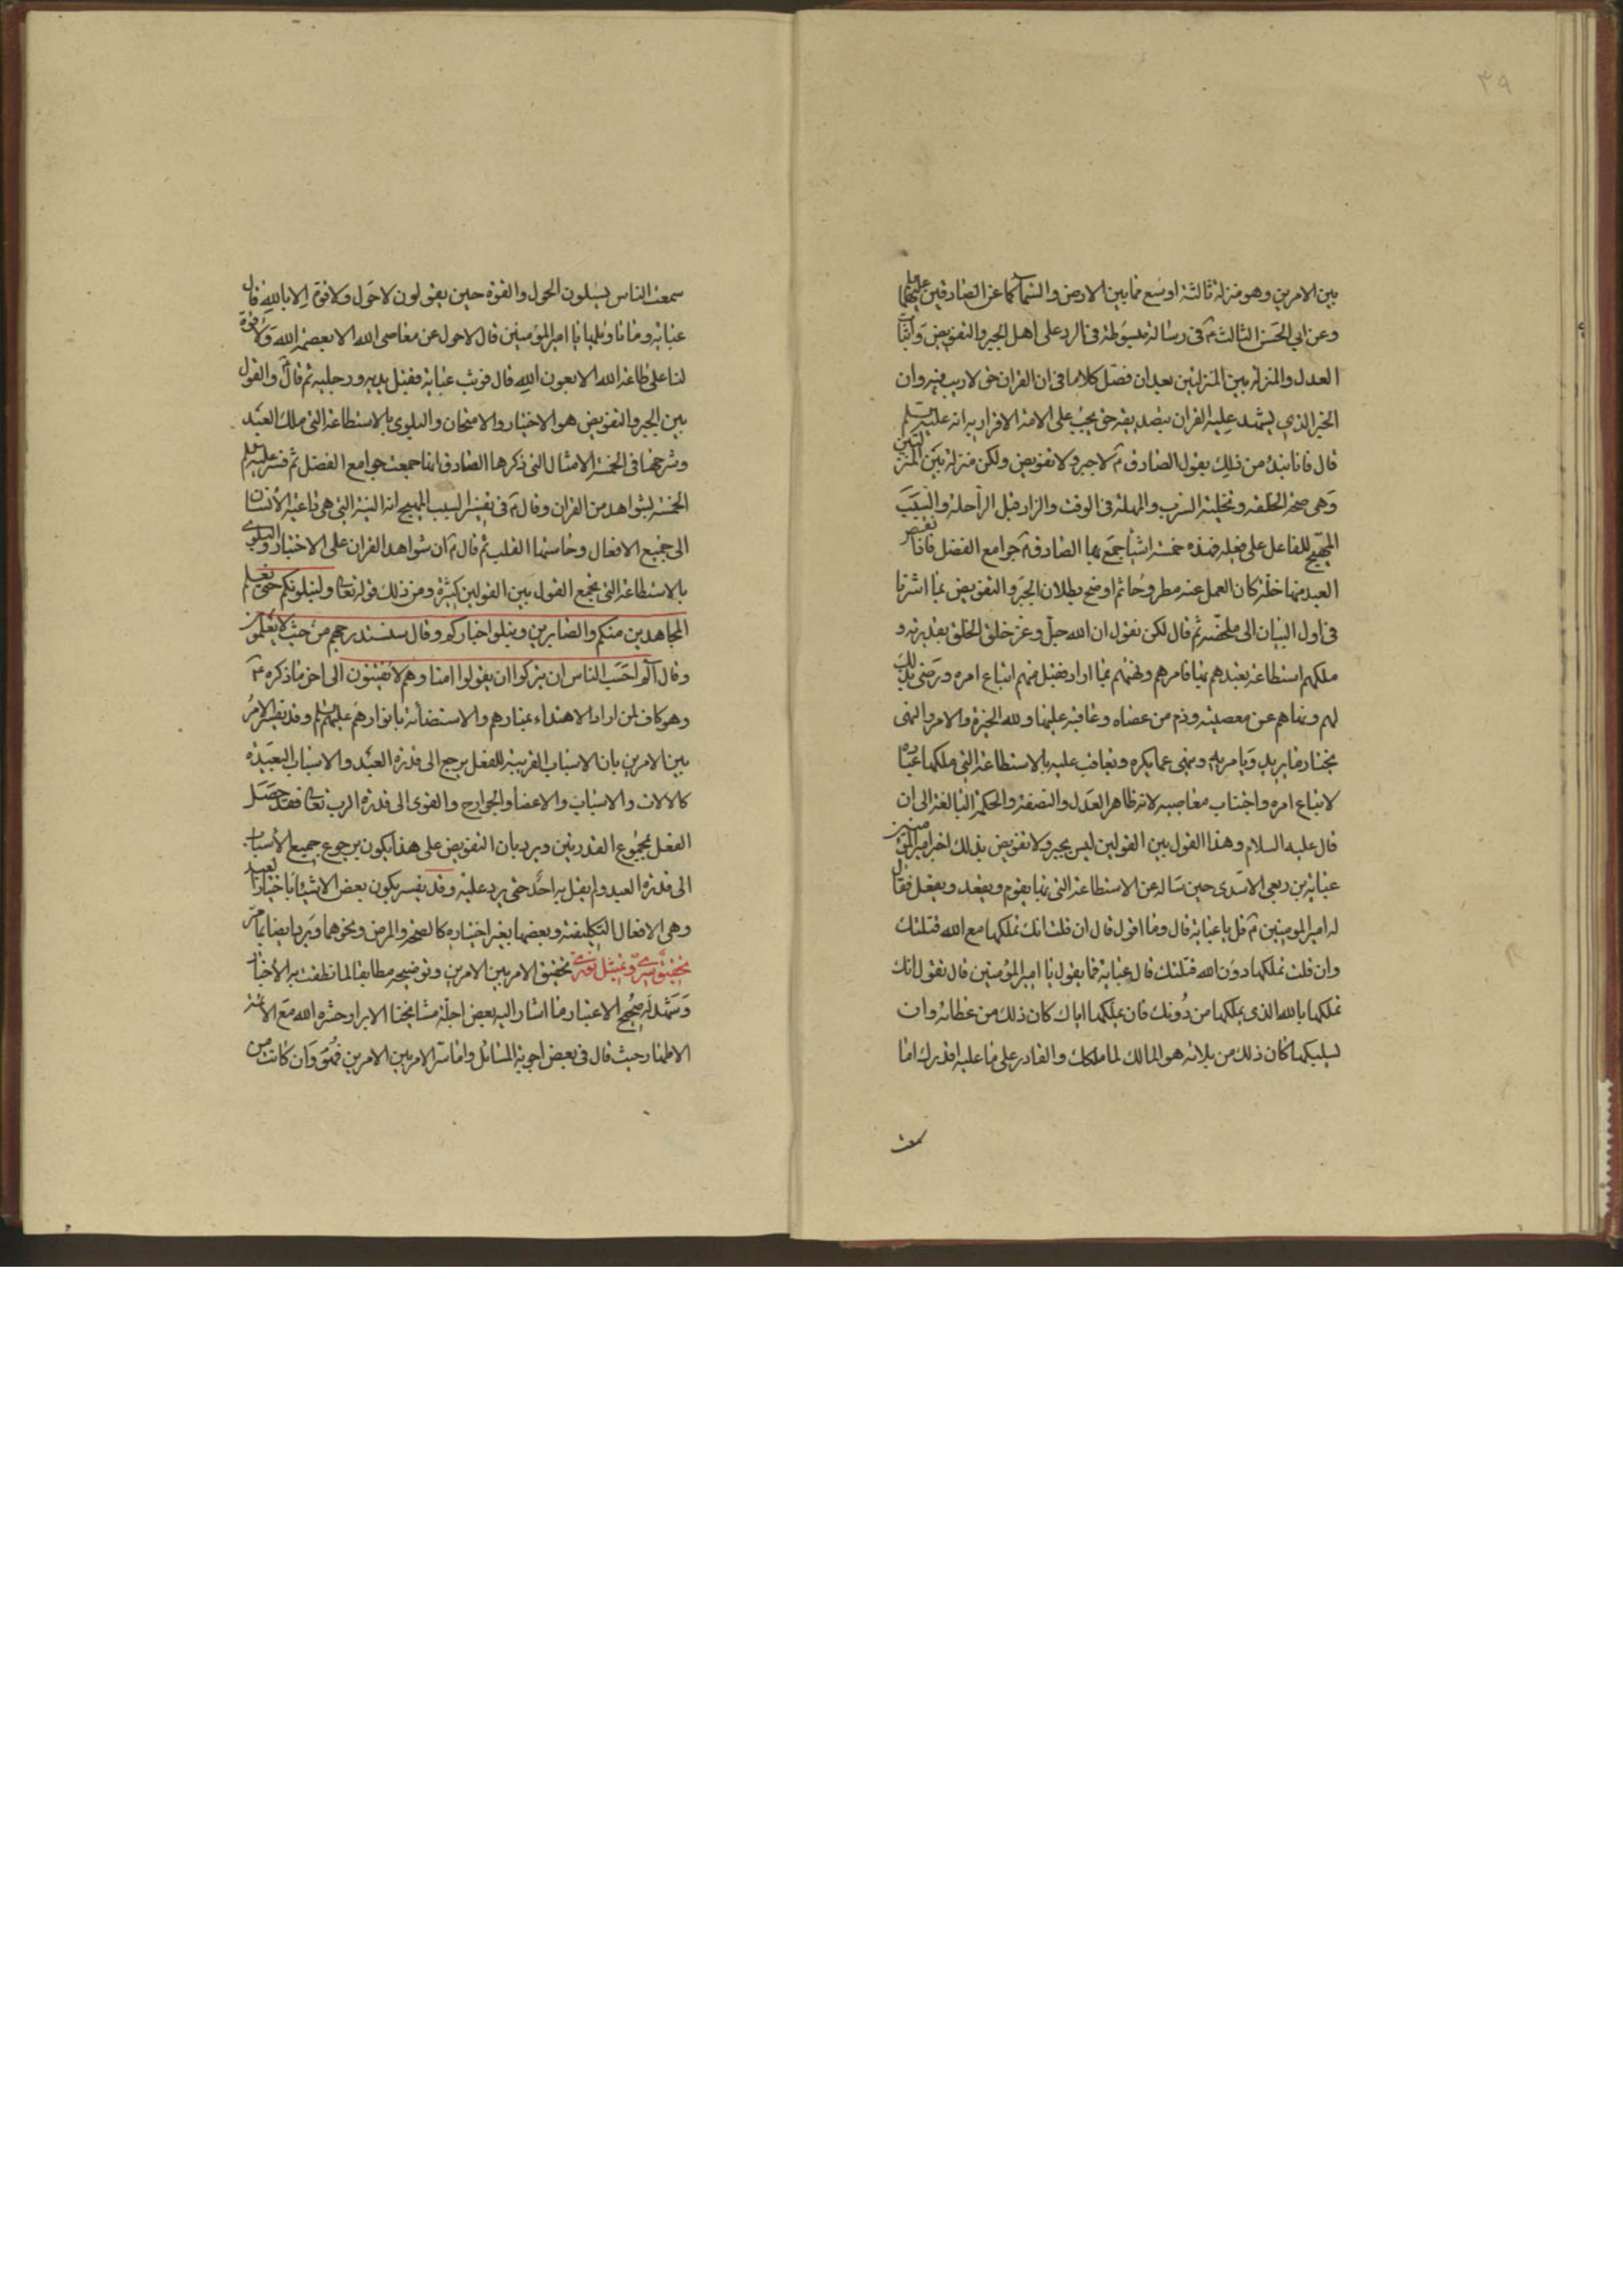 ٣٩
بين الامرين وهو منزلة ثالثة اوسع مما بين الارض والسماء كما عن الصادقين عليهما
وعن ابي الحسن الثالث ع في رسالة مبسوطة في الرد على اهل الجبر والتفويض واثبات
العدل والمنزلة بين المنزلتين بعد ان فصل كلاما في ان القران حق لا ريب فيه وان
الخبر الذي يشهد عليه القران بتصديقه حق يجب على الامة الاقرار به انه عليه السلم
قال فانا نبدء من ذلك بقول الصادق ع لا جبر ولا تفويض ولكن منزلة بين المنزلتين
وهي صحة الخلقة وتخلية السرب والمهلة في الوقت والزاد قبل الراحلة والسبب
المهيج للفاعل على فعله فهذه خمسة اشياء جمع بها الصادق ع جوامع الفضل فاذا نقص
العبد منها خلة كان العمل عنه مطروحا ثم اوضح بطلان الجبر والتفويض بما اشرنا
في اول البيان الى ملخصه ثم قال لكن نقول ان الله جل وعز خلق الخلق بقدرته و
ملكهم استطاعة تعبدهم بها فامرهم ونهيهم بما اراد فقبل منهم اتباع امره ورضى بذلك
لهم ونهاهم عن معصيته وذم من عصاه وعاقبه عليها ولله الخيرة والامر والنهي
يختار ما يريد ويامر به وينهى عما يكره ويعاقب عليه بالاستطاعة التي ملكها عباده
لاتباع امره واجتناب معاصيه لانه ظاهر العدل والنصفة والحكمة البالغة الى ان
قال عليه السلام وهذا القول بين القولين ليس بجبر ولا تفويض بذلك اخبر امير المؤمنين
عباية بن ربعي الاسدي حين ساله عن الاستطاعة التي بها يقوم ويقعد ويفعل فقال
له امير المومنين ع قل يا عباية قال وما اقول قال ان قلت انك تملكها مع الله قتلتك
وان قلت تملكها دون الله قتلتك قال عباية فما يقول يا امير المؤمنين قال تقول انك
تملكها بالله الذي يملكها من دونك فان يملكها اياك كان ذلك من عطائه وان
يسلبكها كان ذلك من بلائه هو المالك لما ملكك والقادر على ما عليه اقدرك اما
سمعت
سمعت الناس يسئلون الحول والقوة حين يقولون لا حول ولا قوة الا بالله قال
عباية وما تاويلها يا امير المؤمنين قال لا حول عن معاصي الله الا بعصمة الله ولا قوة
لنا على طاعة الله الا بعون الله قال فوثب عباية فقبل يديه ورجليه ثم قال ع والقول
بين الجبر والتفويض هو الاختبار والامتحان والبلوى بالاستطاعة التي ملك العبد
وشرحها في الخمسة الامثال التي ذكرها الصادق انها جمعت جوامع الفضل ثم فسر عليه السلم
الخمسة بشواهد من القران وقال ع في تفسير السبب المهيج انه النية التي هي داعية الانسان
الى جميع الافعال وحاستها القلب ثم قال ع ان شواهد القران على الاختبار والبلوى
بالاستطاعة التي تجمع القول بين القولين كثيرة ومن ذلك قوله تعالى ولنبلونكم حتى نعلم
المجاهدين منكم والصابرين ونبلوا اخباركم وقال سنستدرجهم من حيث لا يعلمون
وقال الم احسب الناس ان يتركوا ان يقولوا امنا وهم لا يفتنون الى اخر ما ذكره ع
وهو كاف لمن اراد الاهتداء بمنارهم والاستضائة بانوارهم عليهم السلم وقد يفسر الامر
بين الامرين بان الاسباب القريبة للفعل يرجع الى قدرة العبد والاسباب البعيدة
كالالات والاسباب والاعضاء والجوارح والقوى الى قدرة الرب تعالى فقد حصل
الفعل بمجموع القدرتين ويرد بان التفويض على هذا يكون برجوع جميع الاسباب
الى قدرة العبد ولم يقل به احد حتى يرد عليه وقد يفسر بكون بعض الاشياء باختيار العبد
وهي الافعال التكليفية وبعضها بغير اختياره كالصحة والمرض ونحوهما ويرد ايضا بما مر
تحقيق سري وتمثيل نوري تحقيق الامر بين الامرين وتوضيحه مطابقا لما نطقت به الاخبار
وشهد له صحيح الاعتبار ما اشار اليه بعض اجلة مشايخنا الابرار حشره الله مع الائمة
الاطهار حيث قال في بعض اجوبة المسائل واما سر الامر بين الامرين فهو وان كانت من